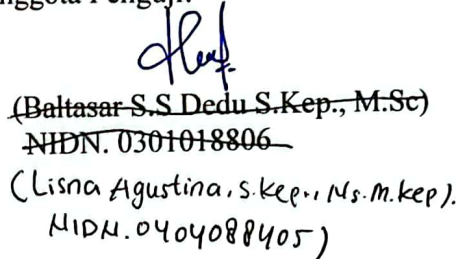 (Baltasar S.S Dedu S.Kep., M.Sc)
NIDN. 0301018806
(Lisna Agustina, S.kep., Ns. M.kep).
NIDN. 0404088405)